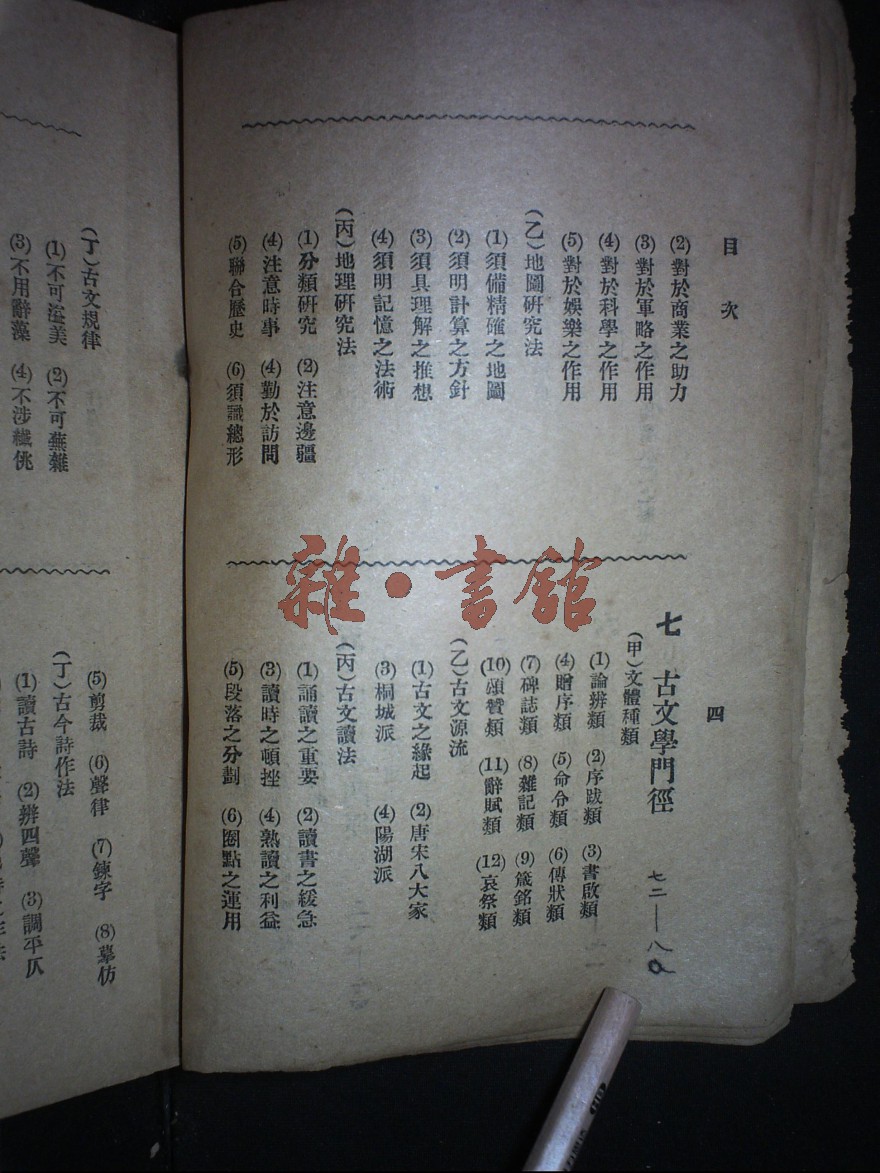 目次
(2)對於商業之助力
(3)對於軍略之作用
(4)對於科學之作用
(5)對於娛樂之作用
(乙)地圖研究法
(1)須備精確之地圖
(2)須明計算之方針
(3)須具理解之推想
(4)須明記憶之法術
(丙)地理研究法
(1)分類研究 (2)注意邊疆
(4)注意時事 (4)勤於訪問
(5)聯合歷史 (6)須識總形
四
七 古文學門徑 七二—八〇
(甲)文體種類
(1)論辨類 (2)序跋類 (3)書啟類
(4)贈序類 (5)命令類 (6)傳狀類
(7)碑誌類 (8)雜記類 (9)箴銘類
(10)頌贊類 (11)辭賦類 (12)哀祭類
(乙)古文源流
(1)古文之緣起 (2)唐宋八大家
(3)桐城派 (4)陽湖派
(丙)古文讀法
(1)誦讀之重要 (2)讀書之緩急
(3)讀時之頓挫 (4)熟讀之利益
(5)段落之分劃 (6)圈點之運用
(丁)古文規律
(1)不可溢美 (2)不可蕪雜
(3)不用辭藻 (4)不涉纖佻
(5)剪裁 (6)聲律 (7)鍊字 (8)摹仿
(丁)古今詩作法
(1)讀古詩 (2)辨四聲 (3)調平仄
雜·書館